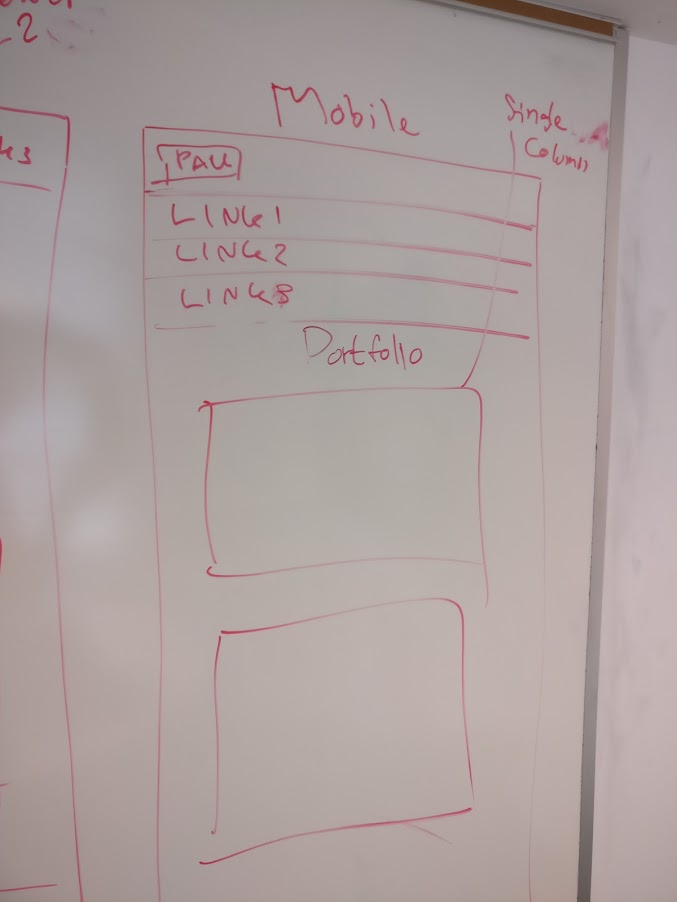 2
Mobile
Single
Column
LINK1
LINK2
LINK3
Portfolio